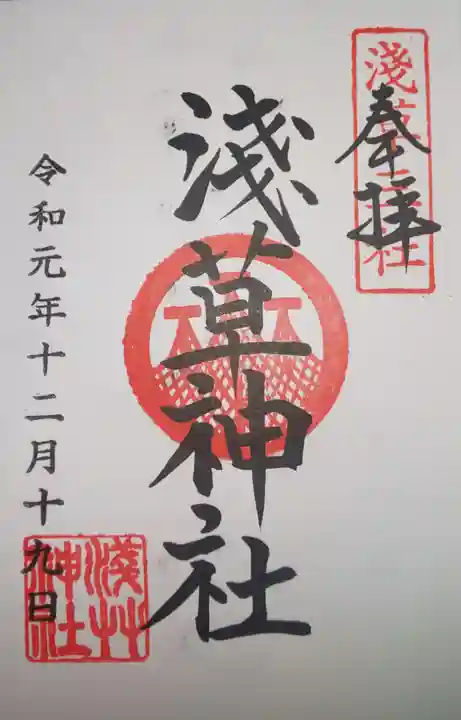 淺草三社
奉拝
淺草神社
令和元年十二月十九日
淺艸
神社